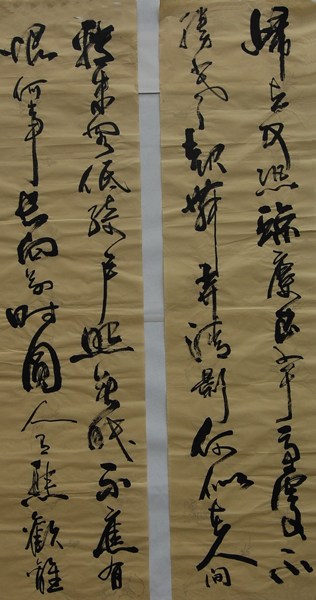 歸去又恐瓊樓玉宇高處不
勝寒起舞弄清影何似在人間
轉朱閣低綺戶照無眠不應有
恨何事長向別時圓人有悲歡離